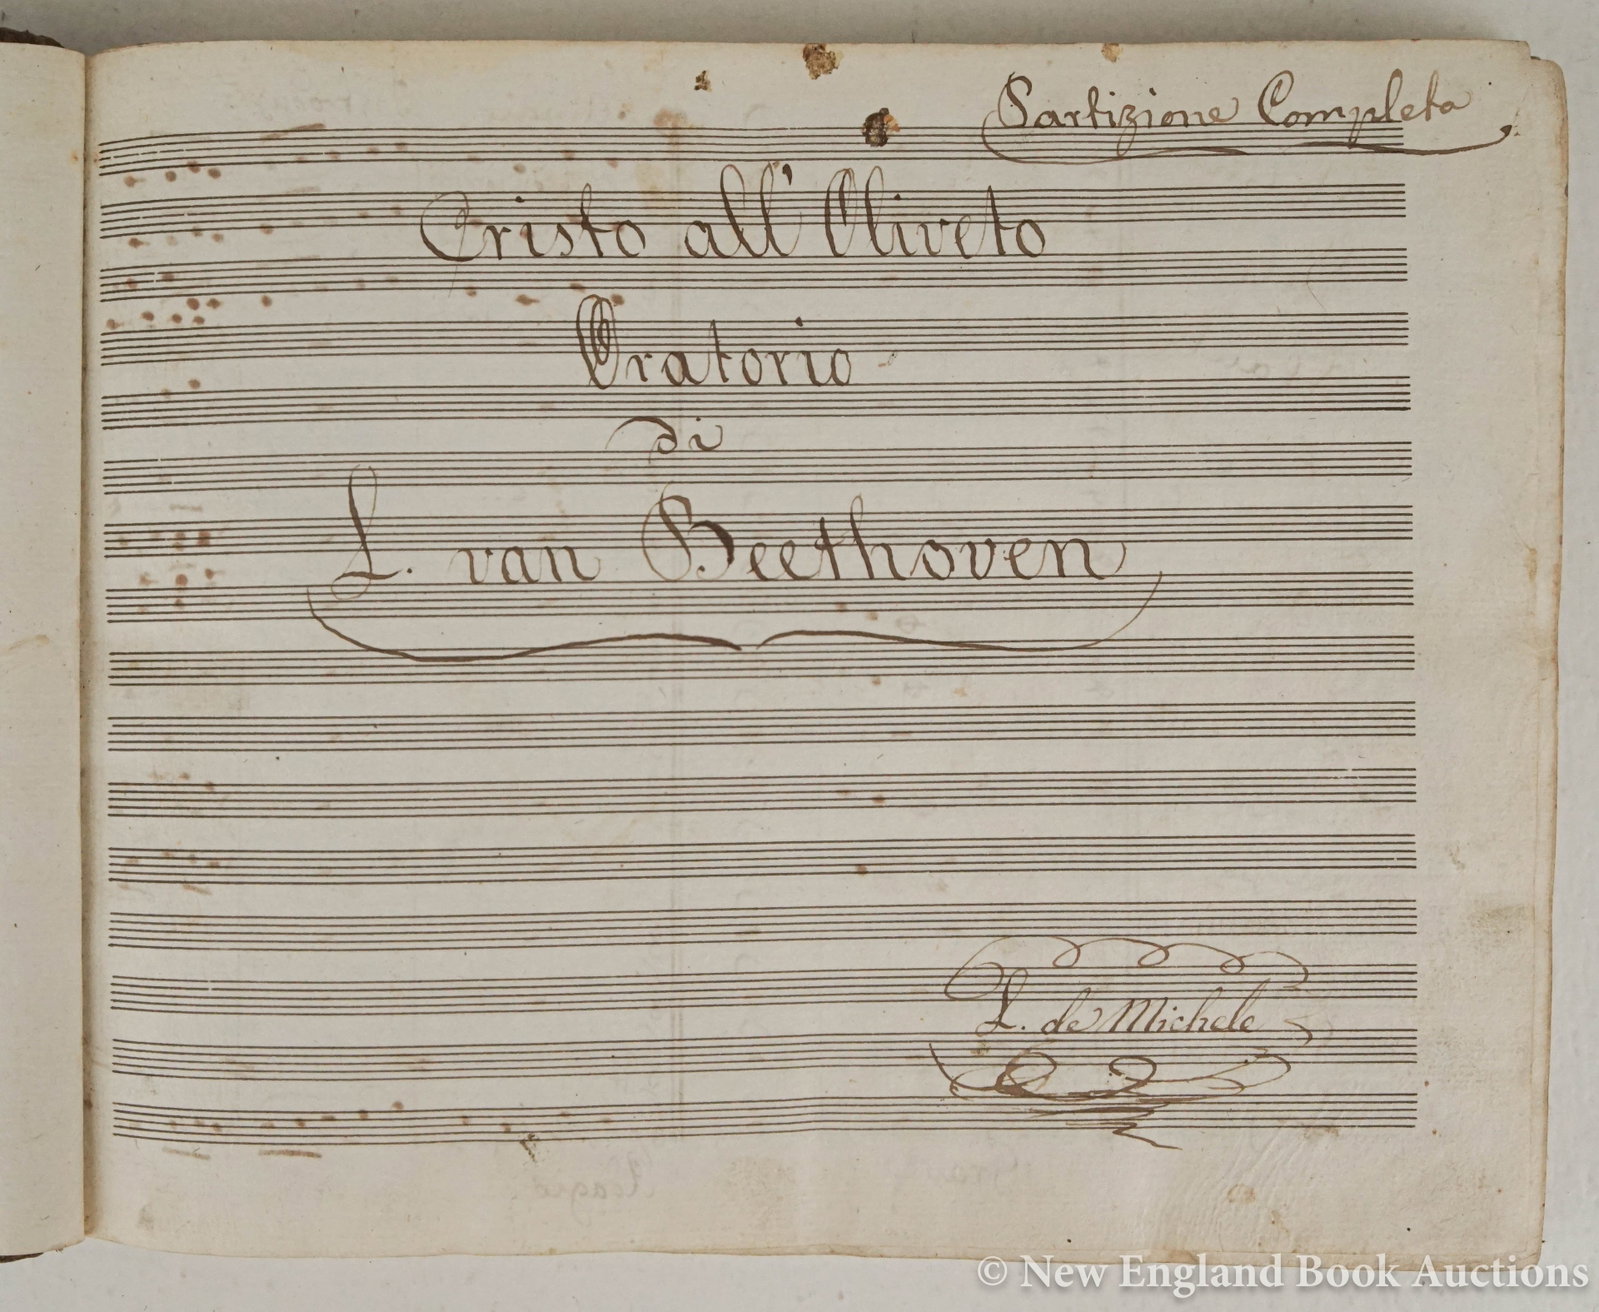 Partizione Completa
Cristo all' Oliveto
Oratorio
di
L. van Beethoven
L. de Michele
© New England Book Auctions